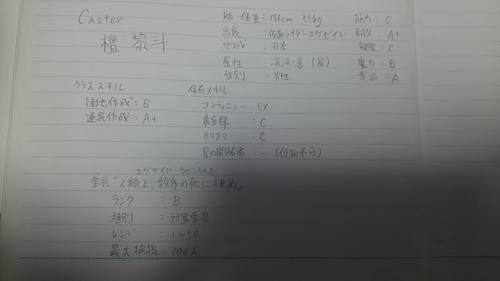 Caster
檀 黎斗
身長・体重：176cm・
出展：仮面ライダーエグゼイド
地域：日本
属性：混沌・善（悪）
性別：男性
筋力 C
耐久 A+
敏捷 C
魔力 B
幸運 A
クラススキル
陣地作成：B
道具作成：A+
保有スキル
コンティニュー：EX
黄金律：C
カリスマ：C
星の開拓者：－（使用不可）
宝具「人類よ、数多の死に挑め」
ランク：B
種別：対軍宝具
レンジ：1～50
最大捕捉：100人